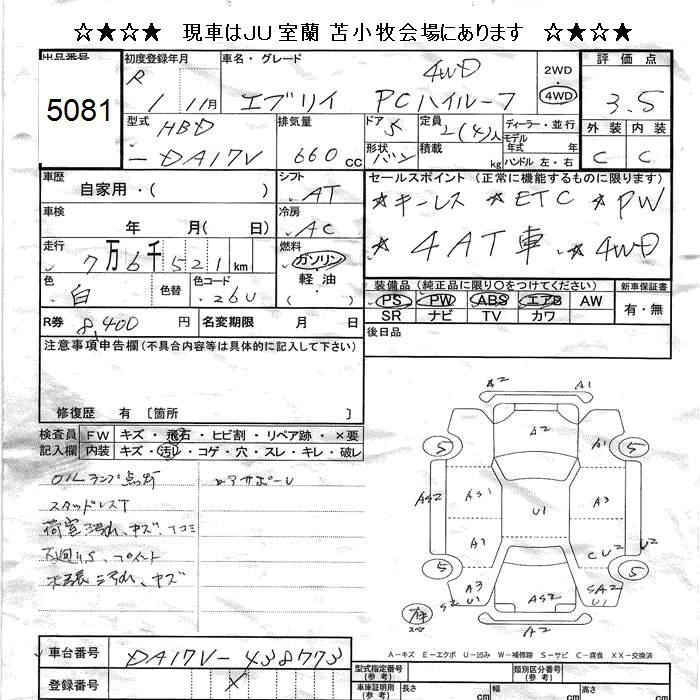 ☆★☆★ 現車はJU室蘭 苫小牧会場にあります ☆★☆★
出品番号 初度登録年月 車名・グレード 評価点
5081 R 1 11月 エブリイ PCハイルーフ 4WD 2WD 4WD 3.5
型式 HBD 排気量 ドア 5 定員 2(4)人 ディーラー・並行 外装 内装
-DA17V 660 cc 形状 バン 積載 kg モデル年式 年 ハンドル 左・右 C C
車歴 自家用・( ) シフト AT セールスポイント (正常に機能するものに限ります)
車検 年 月( 日) 冷房 AC ☆キーレス ☆ETC ☆PW
走行 7万6千521km 燃料 ガソリン 軽油 ( ) ☆4AT車 ☆4WD
色 白 色替 色コード 26U 装備品 (純正品に限り○をつけてください) 新車保証書
PS PW ABS エアB AW 有・無
R券 8,400 円 名変期限 月 日 SR ナビ TV カワ
注意事項申告欄(不具合内容等は具体的に記入して下さい) 後日品
修復歴 有 〔箇所 〕
検査員 FW キズ・飛石・ヒビ割・リペア跡・×要
記入欄 内装 キズ・汚れ・コゲ・穴・スレ・キレ・破レ
OILランプ点灯
スタッドレスT
荷室汚れ、キズ、凹コミ
下廻りS、
汚れ、キズ
A2 A1
5 A2 A1 5
AS2 AS1 U1 A3 U2
A1 CU2
5 A3 U1 SA2 U1 5
S2 AS2
有 スペア A2
A-キズ E-エクボ U-凹み W-補修跡 S-サビ C-腐食 XX-交換済
車台番号 DA17V-438773 型式指定番号(参考) 類別区分番号(参考)
登録番号 × 車庫証明用(参考) 長さ cm 幅 cm 高さ cm